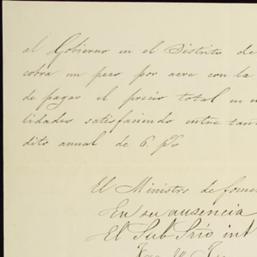 al Gobierno en el Distrito de
cobra un peso por acre con la
de pagar el precio total en
lidades satisfaciendo entre tan
dito anual de 6 p%
El Ministro de fome
En su ausencia
El Sub Srio int